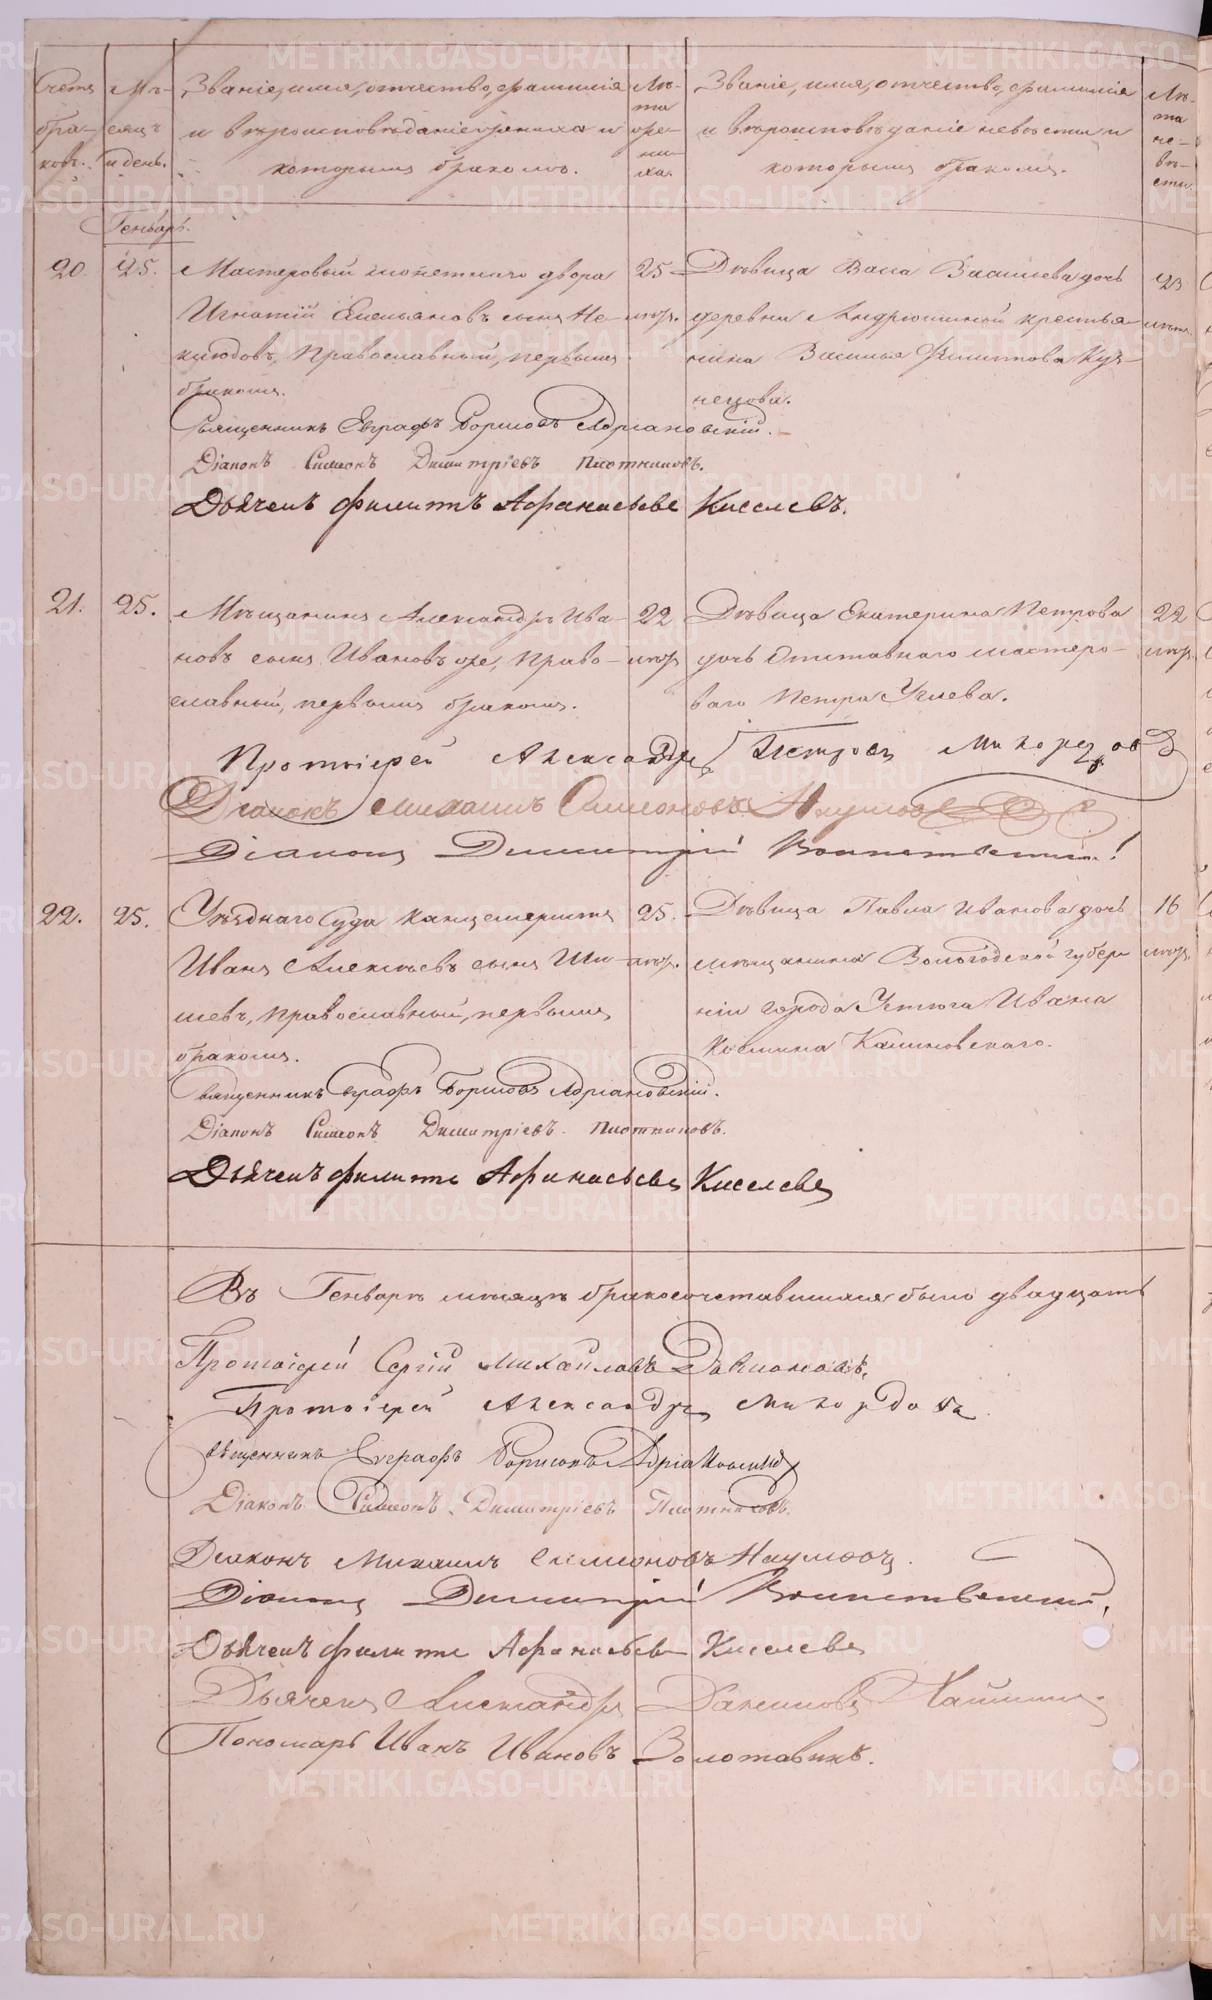 Счетъ бра- ковъ.
Мѣ- сяцъ и день.
Званіе, имя, отчество, фамилія
и вѣроисповѣданіе жениха и
которымъ бракомъ.
Лѣ- та же- ни- ха.
Званіе, имя, отчество, фамилія
и вѣроисповѣданіе невѣсты и
которымъ бракомъ.
Лѣ- та не- вѣ- сты.
Генварь.
20. 25. Мастеровый монетнаго двора 25 Дѣвица Васса Васильева дочь 23
Игнатій Емельяновъ сынъ Не- лѣтъ. деревни Андрюшиной крестья- лѣтъ.
клюдовъ, Православный, первымъ нина Василья Филиппова Куз-
бракомъ. нецова.
Священникъ Евграфъ Борисовъ Адріановскій.
Діаконъ Симеонъ Димитріевъ Плотниковъ.
Дьячекъ Филиппъ Афанасьевъ Киселевъ.
21. 25. Мѣщанинъ Александръ Ива- 22 Дѣвица Екатерина Петрова 22
новъ сынъ Ивановъ же, Право- лѣтъ дочь Отставнаго мастеро- лѣтъ.
славный, первымъ бракомъ. ваго Петра Углева.
Протоіерей Александръ Петровъ
Діаконъ Михаилъ Симеоновъ Наумовъ
Діаконъ Димитрій
22. 25. Уѣзднаго Суда канцеляристъ 25. Дѣвица Павла Иванова дочь 16
Иванъ Алексѣевъ сынъ Ши- лѣтъ. мѣщанина Вологодской губер- лѣтъ.
шевъ, православный, первымъ ніи города Устюга Ивана
бракомъ. Космина Калиновскаго.
Священникъ Евграфъ Борисовъ Адріановскій.
Діаконъ Симеонъ Димитріевъ Плотниковъ.
Дьячекъ Филиппъ Афанасьевъ Киселевъ
Въ Генварѣ мѣсяцѣ бракосочетавшихся было двадцать
Протоіерей Сергій Михайловъ
Протоіерей Александръ
Священникъ Евграфъ Борисовъ Адріановскій
Діаконъ Симеонъ Димитріевъ Плотниковъ.
Діаконъ Михаилъ Симеоновъ Наумовъ.
Діаконъ Димитрій
Дьячекъ Филиппъ Афанасьевъ Киселевъ
Дьячекъ Александръ
Пономарь Иванъ Ивановъ Золотавинъ.
METRIKI.GASO-URAL.RU